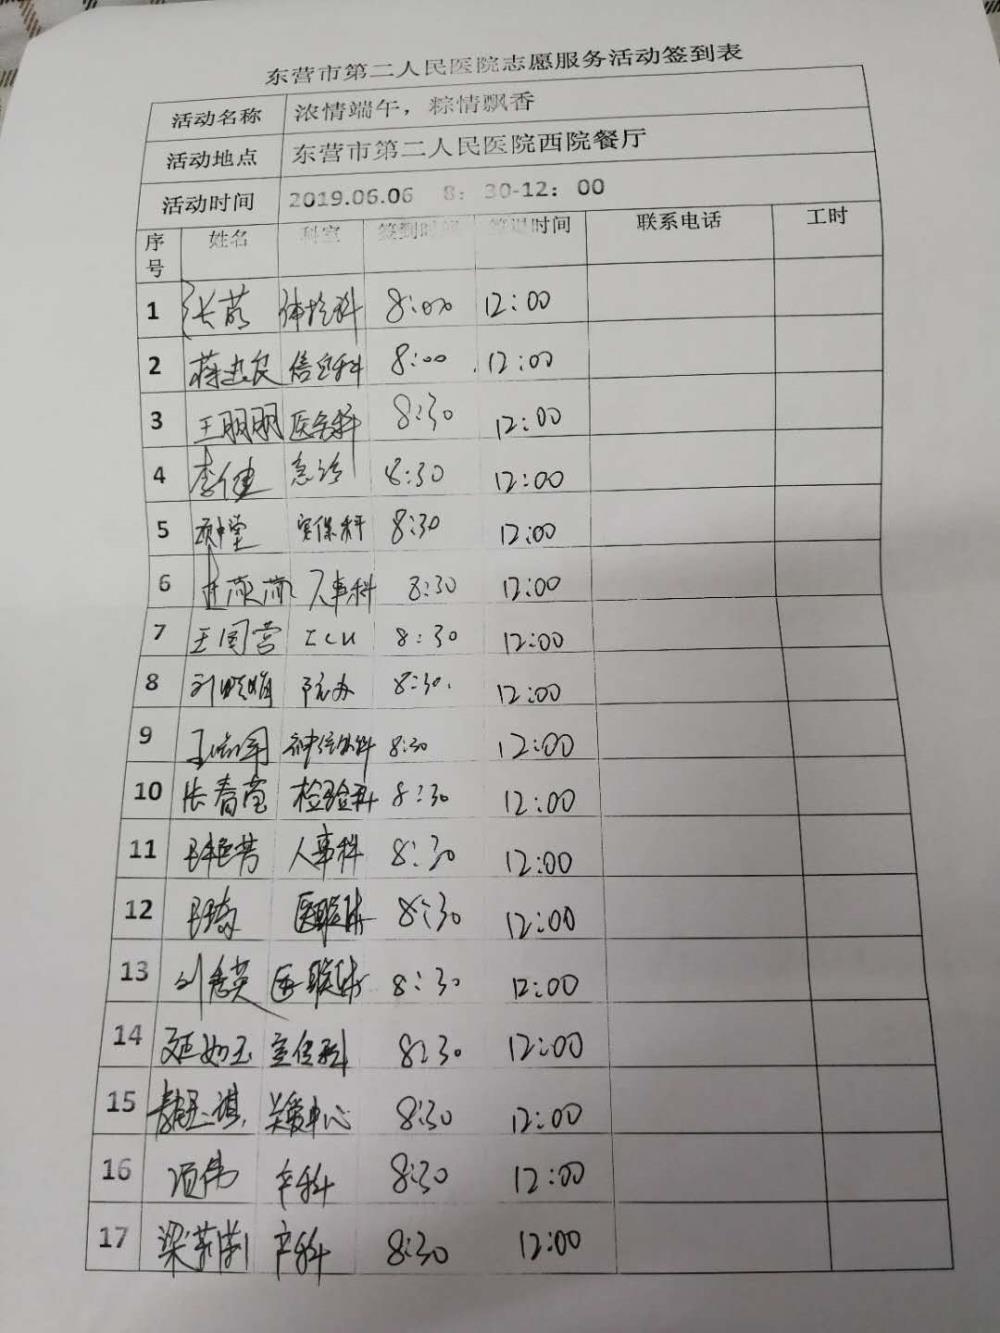 东营市第二人民医院志愿服务活动签到表
活动名称 浓情端午，粽情飘香
活动地点 东营市第二人民医院西院餐厅
活动时间 2019.06.06 8：30-12：00
序号 姓名 科室 签到时间 签退时间 联系电话 工时
1 体检科 8:00 12:00
2 信息科 8:00 12:00
3 王朋朋 医务科 8:30 12:00
4 李健 急诊 8:30 12:00
5 8:30 12:00
6 人事科 8:30 12:00
7 王国营 ICU 8:30 12:00
8 刘晓娟 院办 8:30. 12:00
9 神经外科 8:30 12:00
10 张春莹 检验科 8:30 12:00
11 王艳芳 人事科 8:30 12:00
12 医联体 8:30 12:00
13 刘秀英 医联体 8:30 12:00
14 延如玉 宣传科 8:30 12:00
15 关爱中心 8:30 12:00
16 项伟 产科 8:30 12:00
17 产科 8:30 12:00